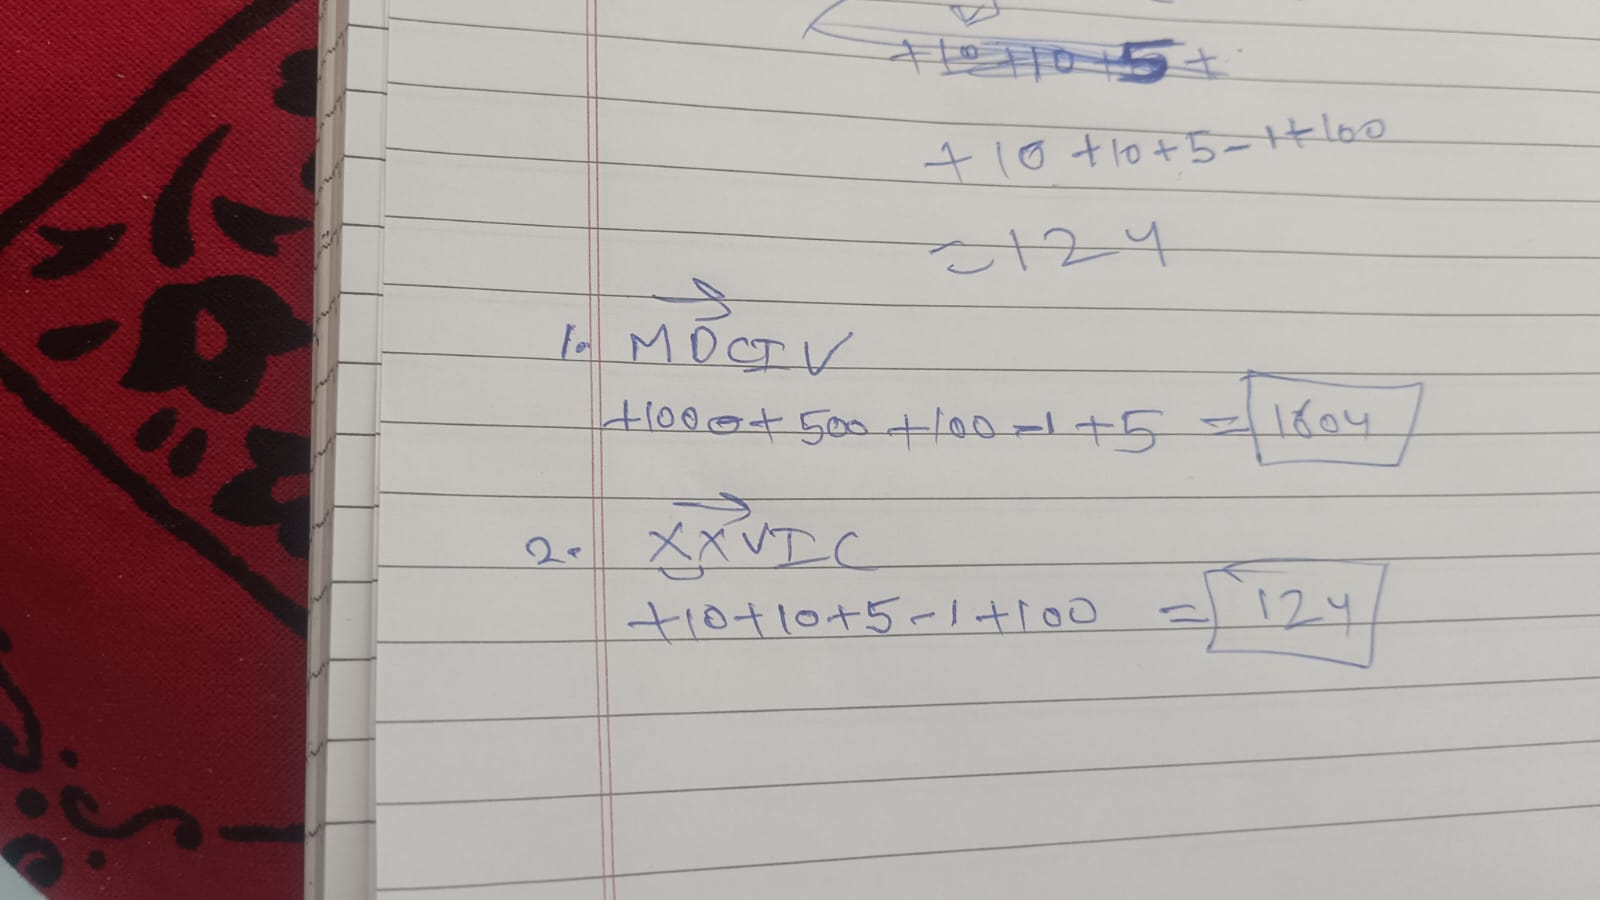 +10+10+5+
+10+10+5-1+100
=124
1. MDCIV
+1000+500+100-1+5 = 1604
2. XXVIC
+10+10+5-1+100 = 124